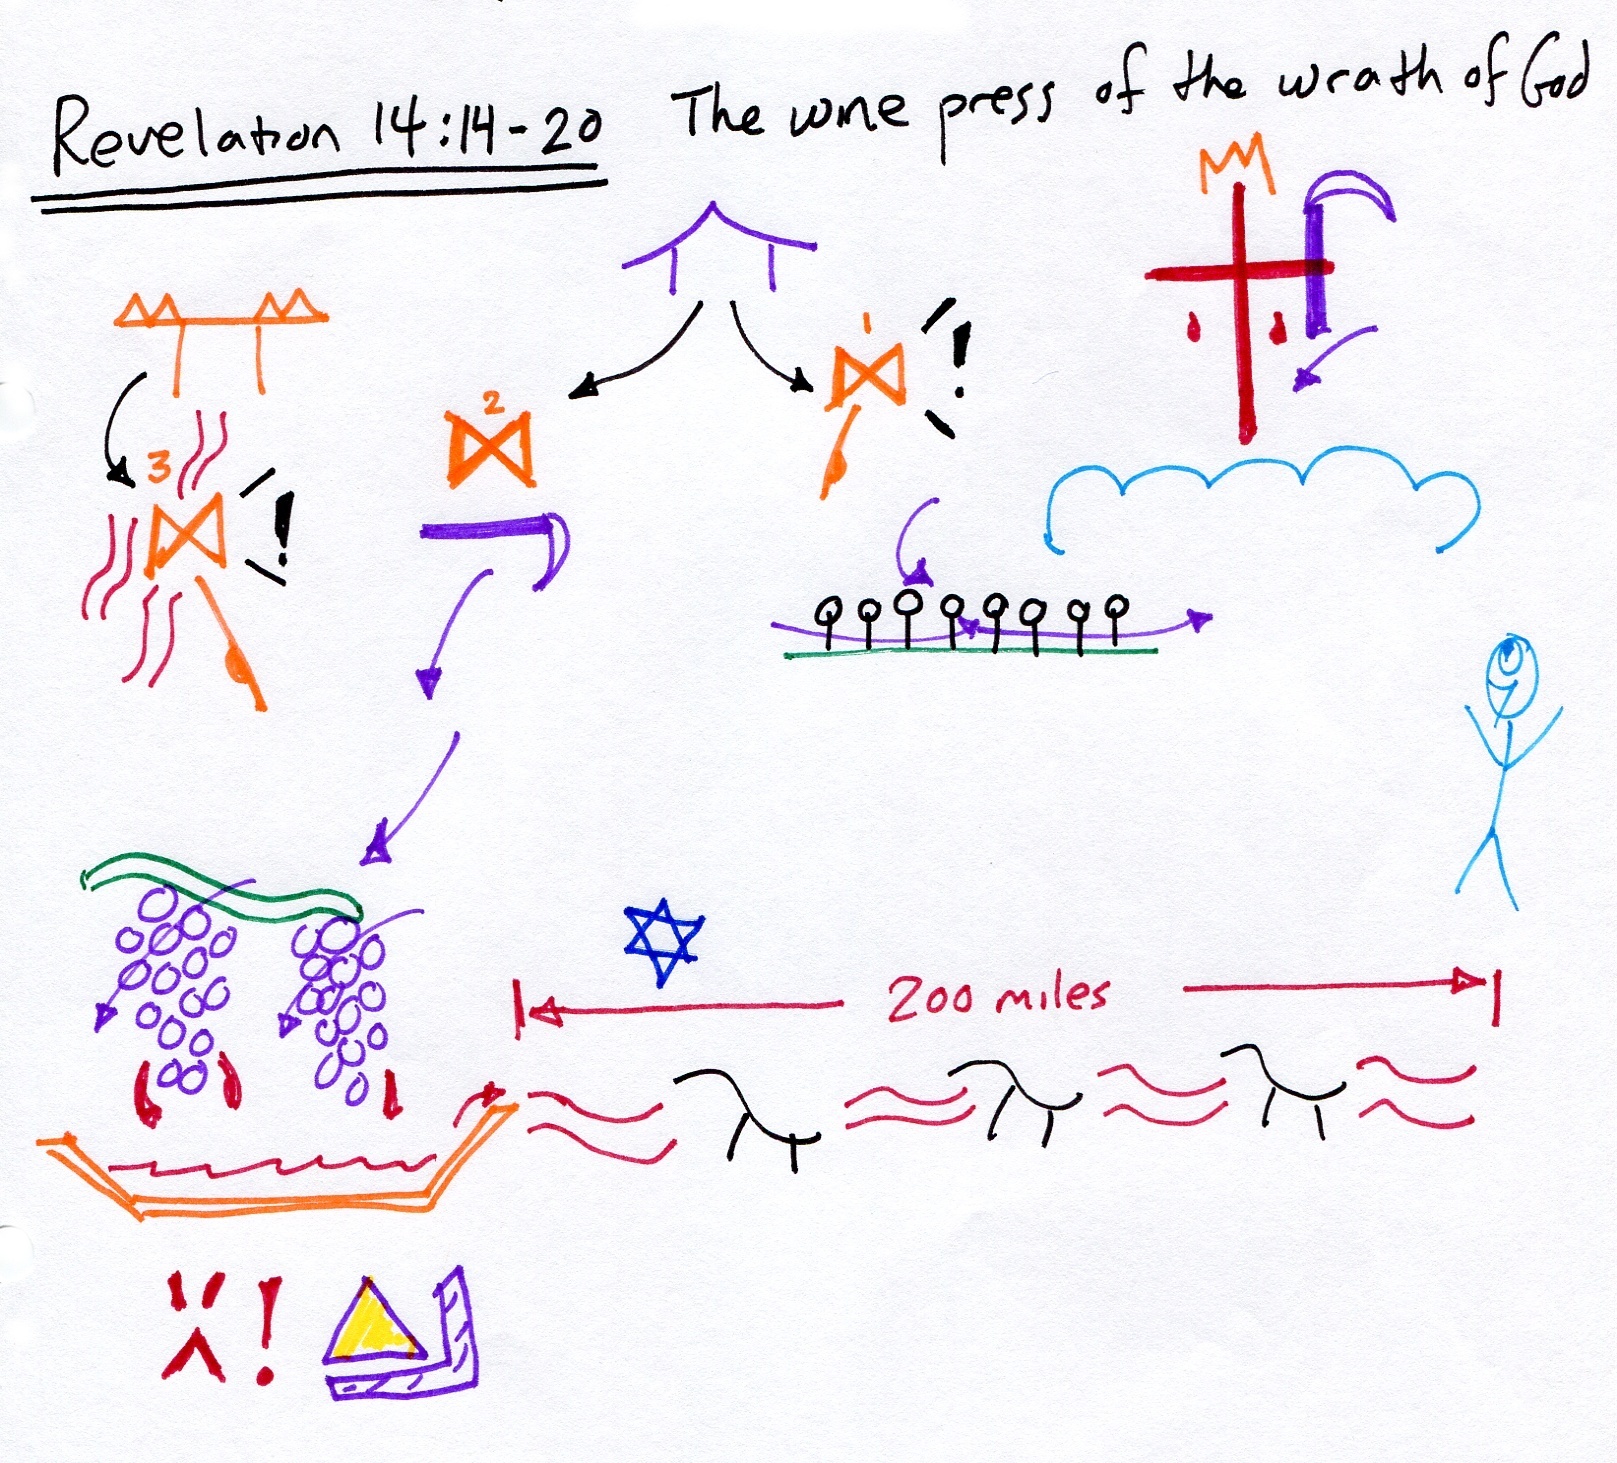 Revelation 14:14-20 The wine press of the wrath of God
1
2
3
200 miles